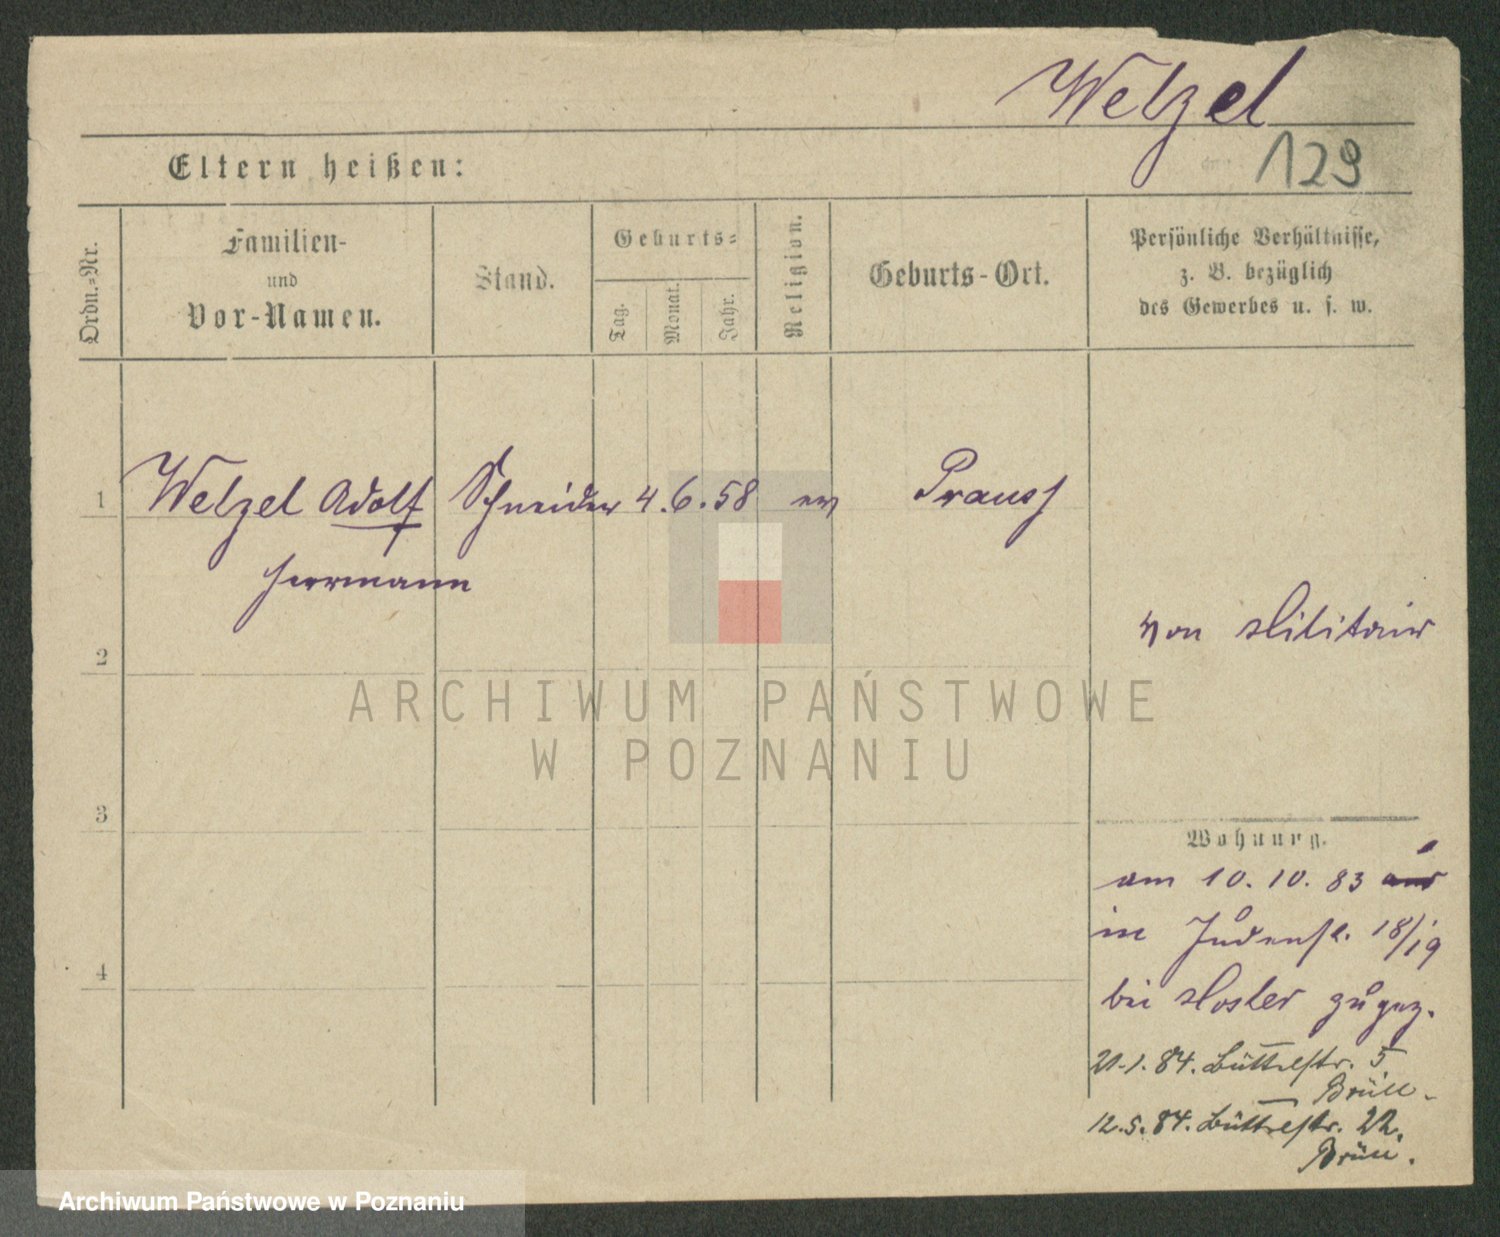 Welzel
129
Eltern heißen:
Ordn.-Nr.
Familien-
und
Vor-Namen.
Stand.
Geburts-
Tag.
Monat.
Jahr.
Religion.
Geburts-Ort.
Persönliche Verhältnisse,
z. B. bezüglich
des Gewerbes u. s. w.
1 Welzel Adolf Schneider 4.6.58 ev Prauss
Herrmann
von Militair
2
ARCHIWUM PAŃSTWOWE
W POZNANIU
3
Wohnung.
am 10.10.83
in Judenst. 18/19
4
bei zugez.
21.1.84. Büttelstr. 5
12.5.84. Büttelstr. 22.
Archiwum Państwowe w Poznaniu